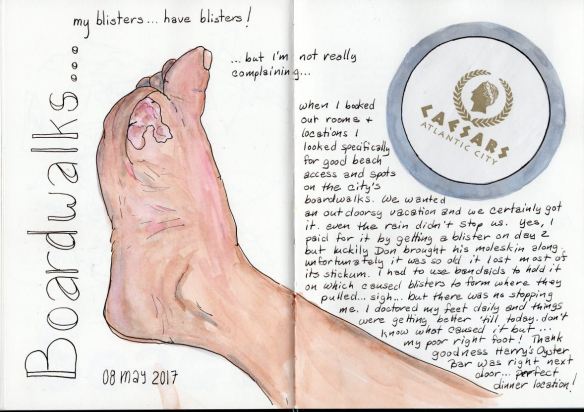 my blisters... have blisters!
... but I'm not really
complaining...
Boardwalks...
when I booked
our rooms +
locations I
looked specifically
for good beach
access and spots
on the city's
boardwalks. We wanted
an outdoorsy vacation and we certainly got
it. even the rain didn't stop us. Yes, I
paid for it by getting a blister on day 2
but luckily Don brought his moleskin along.
unfortunately it was so old it lost most of
its stickum. I had to use bandaids to hold it
on which caused blisters to form where they
pulled... sigh... but there was no stopping
me. I doctored my feet daily and things
were getting better 'till today. don't
know what caused it but ...
my poor right foot! Thank
goodness Harry's Oyster
Bar was right next
door... perfect
dinner location!
CAESARS
ATLANTIC CITY
08 May 2017